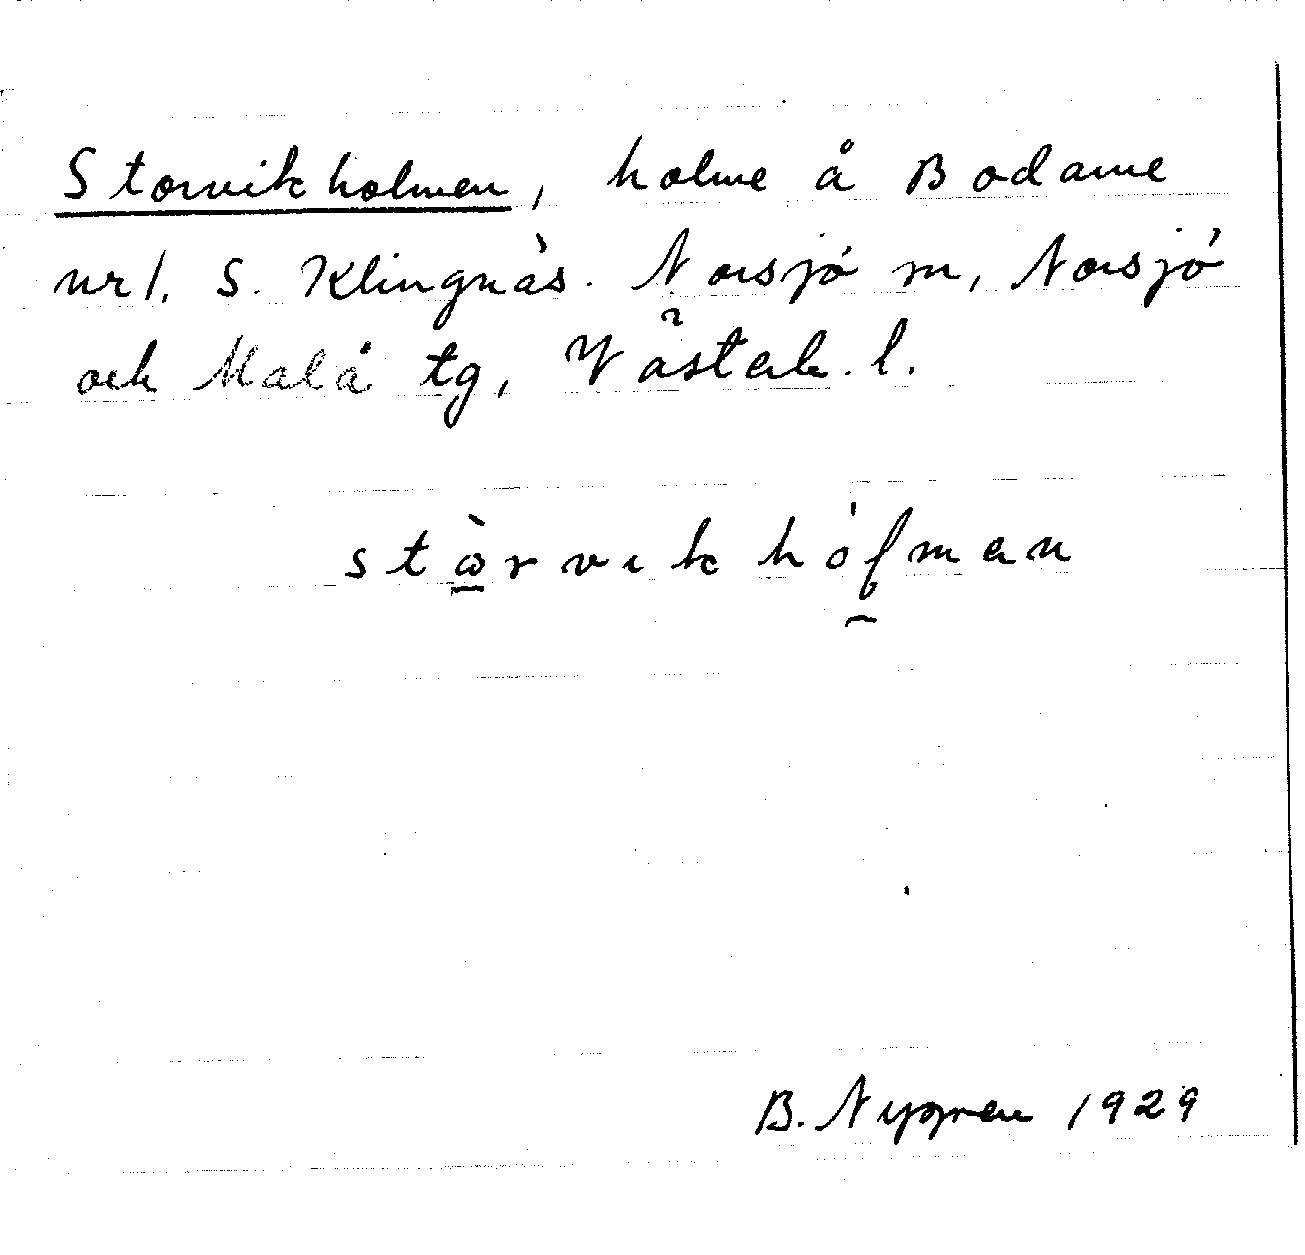 Storvikholmen, holme å Bodarne
nr 1. S. Klingnäs. Norsjö sn, Norsjö
och Malå tg, Västerb. l.
stòrvɩkhólmen
B. Nygren 1929